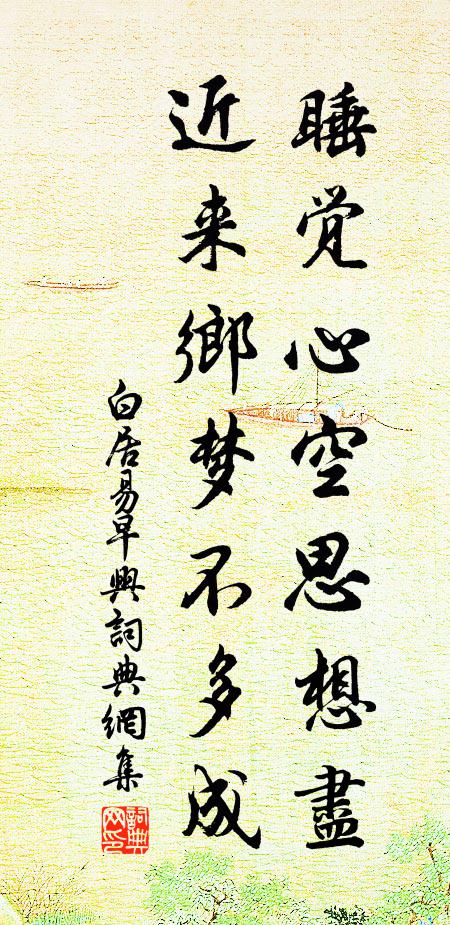 睡觉心空思想盡
近来鄉梦不多成
白居易早興詞典網集
詞典網印